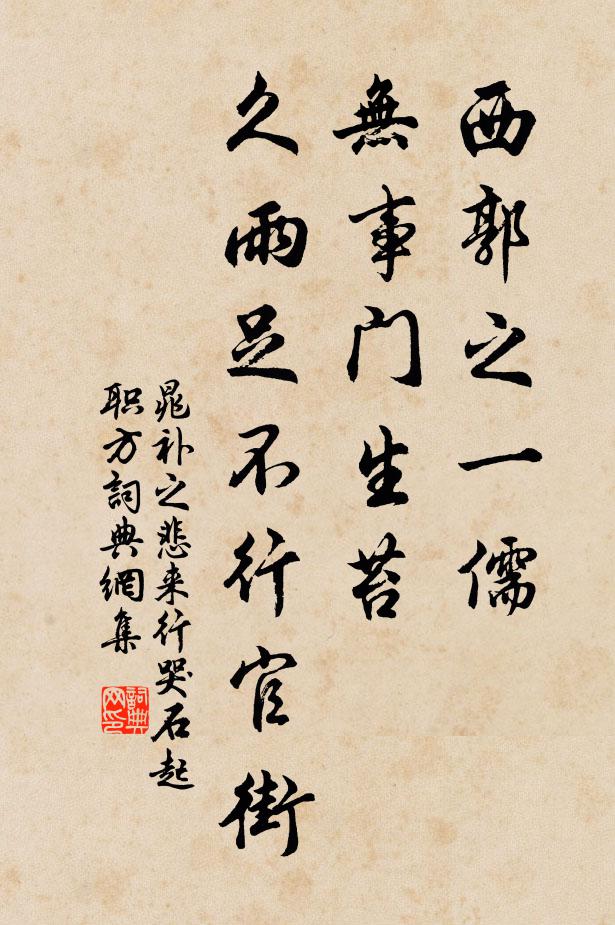 西郭之一儒
無事門生苔
久雨足不行官街
晁补之悲来行哭石起
职方詞典網集
詞典
网印